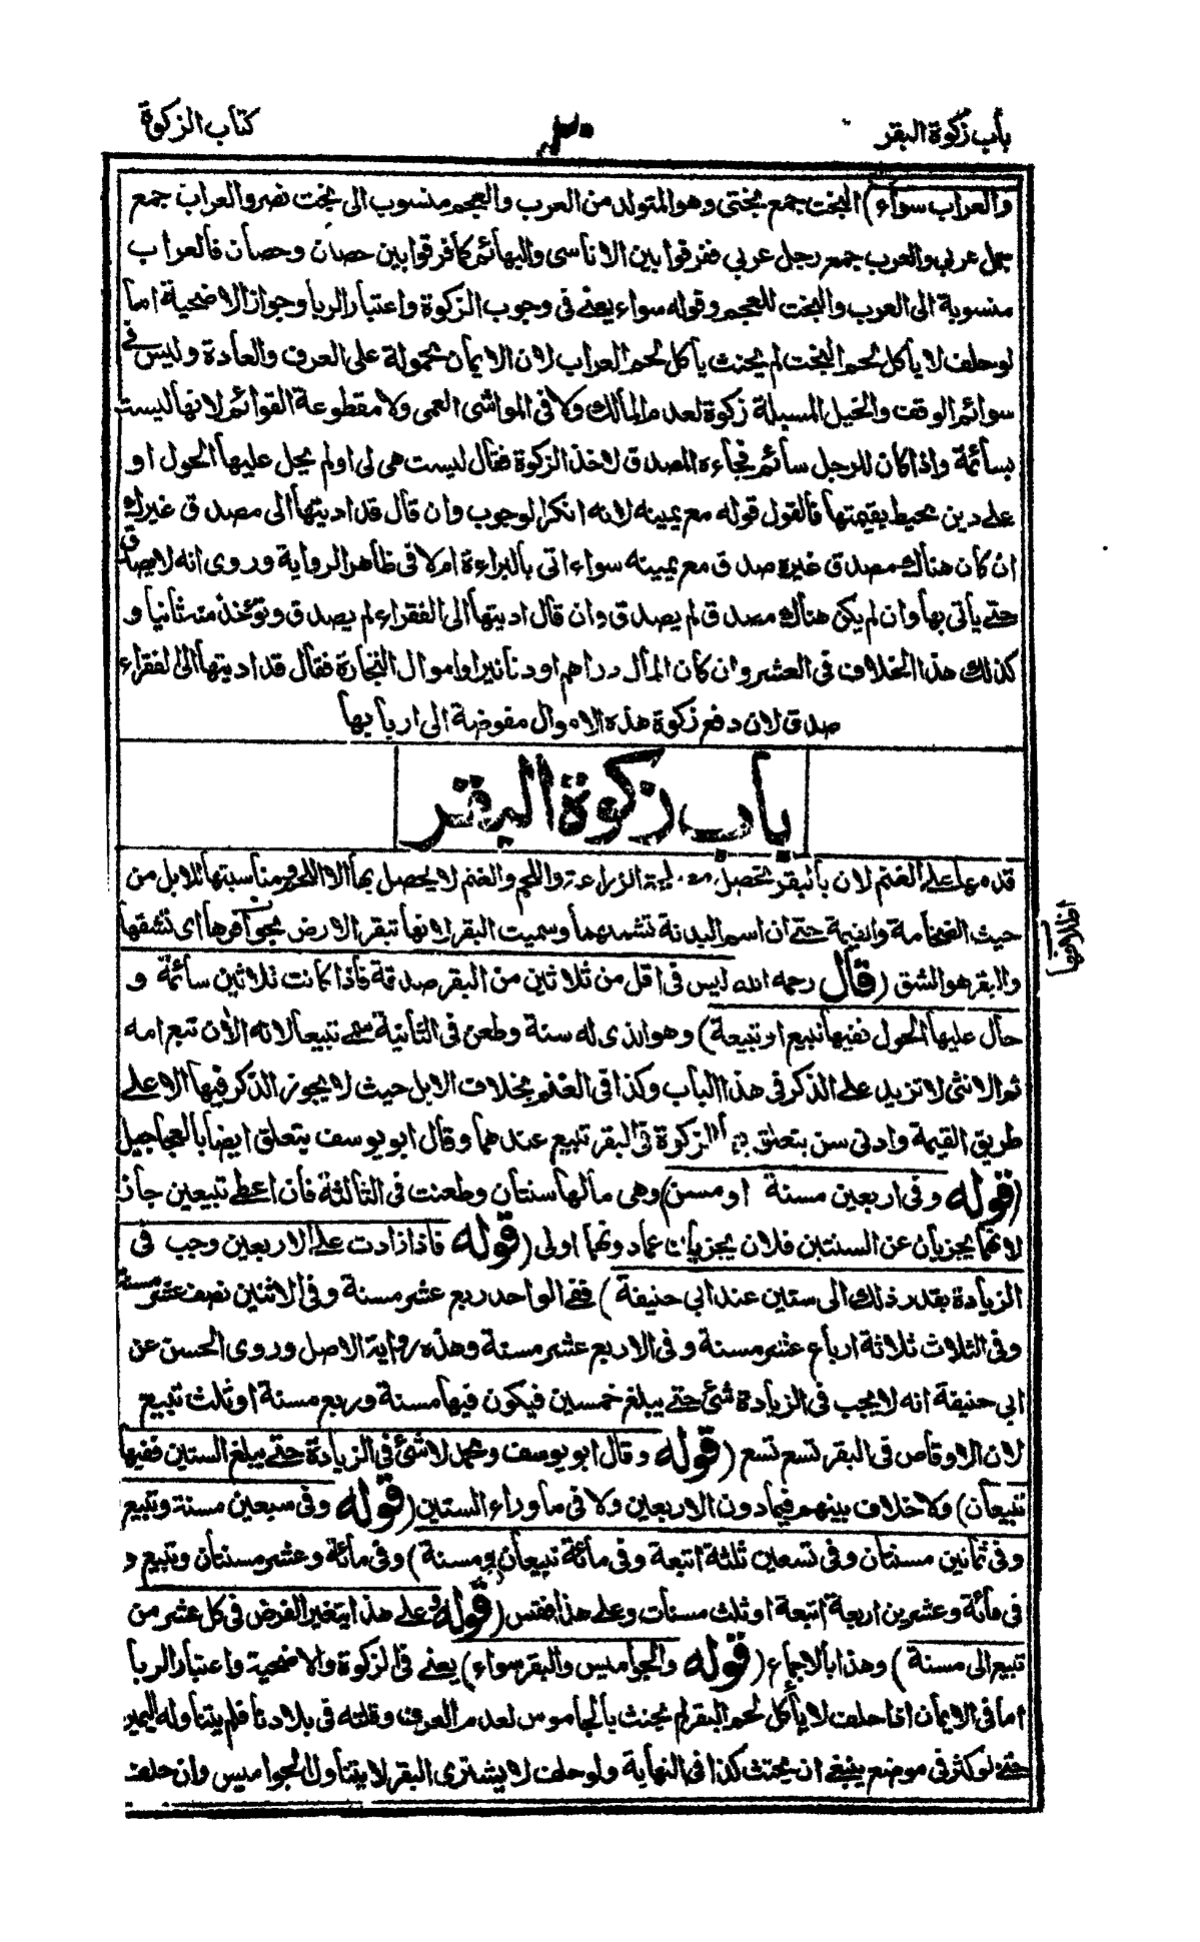 باب زكوة البقر
كتاب الزكوة
والعراب سواء) البخت جمع بختى وهو المتولد من العرب والعجم منسوب الى بخت نصر والعراب جمع
جمل عربى والعرب جمع رجل عربى ففرقوا بين الاناسى والبهائم كما فرقوا بين حصان وحصان فالعراب
منسوبة الى العرب والبخت للعجم وقوله سواء يعنى فى وجوب الزكوة واعتبار الربا وجواز الاضحية اما
لو حلف لا يأكل لحم البخت لم يحنث بأكل لحم العراب لان الايمان محمولة على العرف والعادة وليس فى
سوائم الوقف والخيل المسبلة زكوة لعدم المالك ولا فى المواشى العمى ولا مقطوعة القوائم لانها ليست
بسائمة واذا كان للرجل سائم فجاءه المصدق لاخذ الزكوة فقال ليست هى لى او لم يحل عليها الحول او
على دين محيط بقيمتها فالقول قوله مع يمينه لانه انكر الوجوب وان قال قد اديتها الى مصدق غيرك
ان كان هناك مصدق غيره صدق مع يمينه سواء اتى بالبراءة ام لا فى ظاهر الرواية وروى انه لا يصدق
حتى يأتى بها وان لم يكن هناك مصدق لم يصدق وان قال اديتها الى الفقراء لم يصدق وتؤخذ منه ثانيا و
كذلك هذا الخلاف فى العشر وان كان المال دراهم او دنانير او اموال التجارة فقال قد اديتها الى الفقراء
صدق لان دفع زكوة هذه الاموال مفوضة الى اربابها
باب زكوة البقر
قدمها على الغنم لان بالبقر تحصل الزراعة واللحم والغنم لا يحصل بها الا اللحم ومناسبتها للابل من
حيث الضخامة والقيمة حتى ان اسم البدنة تشملهما وسميت البقر لانها تبقر الارض بحوافرها اى تشقها
اظلافها
والبقر هو الشق (قال رحمه الله ليس فى اقل من ثلاثين من البقر صدقة فاذا كانت ثلاثين سائمة و
حال عليها الحول ففيها تبيع او تبيعة) وهو الذى له سنة وطعن فى الثانية سمى تبيعا لانه الأن تبع امه
ثم الانثى لا تزيد على الذكر فى هذا الباب وكذا فى الغنم بخلاف الابل حيث لا يجوز الذكر فيها الا على
طريق القيمة وادنى سن يتعلق به الزكوة فى البقر تبيع عندهما وقال ابو يوسف يتعلق ايضا بالعجاجيل
(قوله وفى اربعين مسنة او مسن) وهى مالها سنتان وطعنت فى الثالثة فان اعطى تبيعين جاز
لانهما يجزيان عن الستين فلان يجزيان عما دونهما اولى (قوله فاذا زادت على الاربعين وجب فى
الزيادة بقدر ذلك الى ستين عند ابى حنيفة) ففى الواحد ربع عشر مسنة وفى الاثنين نصف عشر مسنة
وفى الثلاث ثلاثة ارباع عشر مسنة وفى الاربع عشر مسنة وهذه رواية الاصل وروى الحسن عن
ابى حنيفة انه لا يجب فى الزيادة شئ حتى يبلغ خمسين فيكون فيها مسنة وربع مسنة او ثلث تبيع
لان الاوقاص فى البقر تسع تسع (قوله وقال ابو يوسف ومحمد لا شئ فى الزيادة حتى يبلغ الستين ففيها
تبيعان) ولا خلاف بينهم فيما دون الاربعين ولا فى ما وراء الستين (قوله وفى سبعين مسنة وتبيع
وفى ثمانين مسنتان وفى تسعين ثلثة اتبعة وفى مائة تبيعان ومسنة) وفى مائة وعشر مسنتان وتبيع و
فى مائة وعشرين اربعة اتبعة او ثلث مسنات وعلى هذا فقس (قوله وعلى هذا يتغير الفرض فى كل عشر من
تبيع الى مسنة) وهذا بالاجماع (قوله والجواميس والبقر سواء) يعنى فى الزكوة والاضحية واعتبار الربا
اما فى الايمان اذا حلف لا يأكل لحم البقر لم يحنث بالجاموس لعدم العرف وقلته فى بلادنا فلم يتناوله اليمين
حتى لو كثر فى موضع ينبغى ان يحنث كذا فى النهاية ولو حلف لا يشترى البقر لا يتناول الجواميس وان حلف